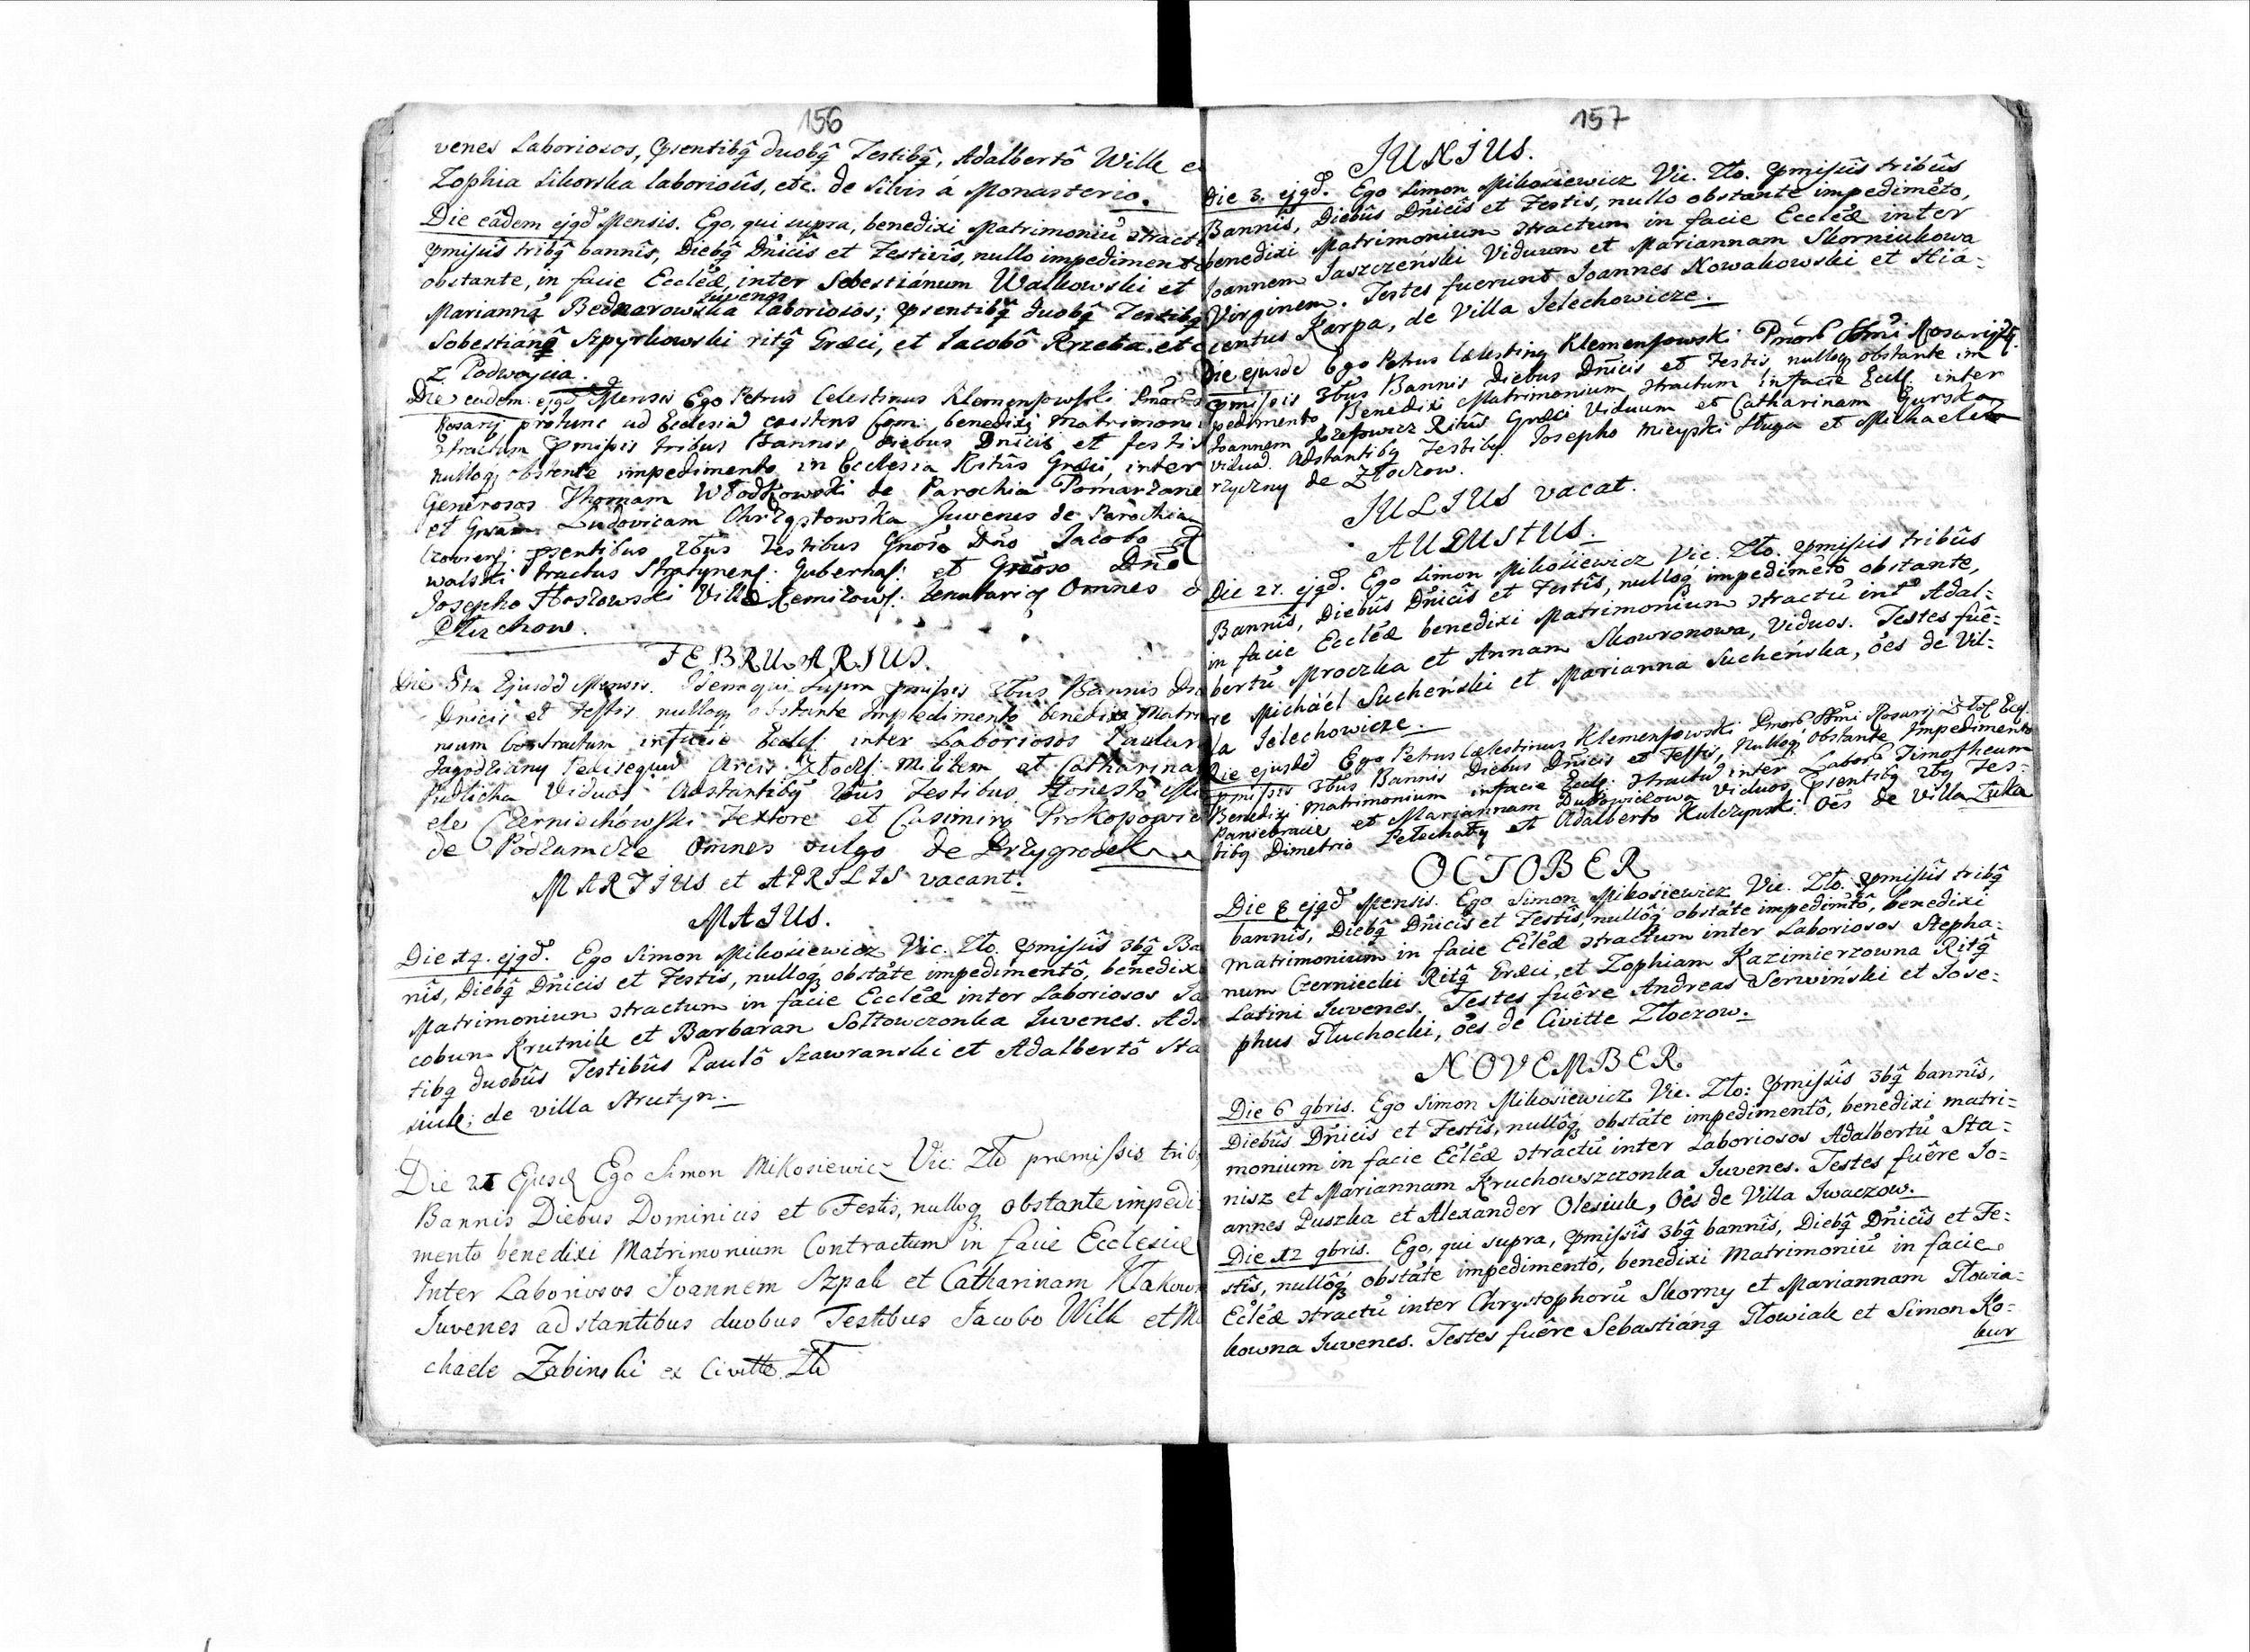 156
venes Laboriosos, pñsentibq̃ duobq̃ Testibq̃, Adalbertô Wilk e
Zophia Sikorska laboriosîs, etc. de Silvis á Monasterio.
Die eâdem ejqď Mensis. Ego, qui supra, benedixi Matrimoniũ ɔtract
pmissîs tribq̃ bannîs, Diebq̃ Dňicîs et Festivîs, nullo impediment
obstante, in facie Eccleæ, inter Sebestiánum Walkowski et
juvenes
Mariannã Bednarowska Laboriosos; psentibq̃ duobq̃ Testibq
Sobestianq̃ Szpyrkowski ritq̃ Græci, et Jacobô Rrzeba. et c
z Podwoycia.
Die eadem ejqd Mensis Ego Petrus Celestinus Klemensowski Pmor
Rosarij protunc ad Ecclesiã existens benedixi matrimoni
ɔtractum pmissis tribus Bannis diebus Dnicis et festis
nulloq obstante impedimento in Ecclesia Ritûs Græci, inter
Generosos Thomam Włodkowski de Parochia Pomarzane
et Gnsam Ludovicam Chrząstowska Juvenes de Parochia
psentibus 2bus Testibus Gnoso Dno Jacobo
walski tractus Stratynens: Gubernas: et Gnoso Dno
Josepho Kozłowski Villæ Remizows: tenutarios Omnes
Pluchow.
FEBRUARIUS.
Die 5ta Ejusdd Mensis. Idem qui Supra pmissis 3bus Bannis Die
Dnicis et Festis nulloq obstante Impedimento benedixi Matri
nium Contractum in facie Eccles: inter Laboriosos Paulum
Jagodziany Pedisequũ Arcis Złocz: Militem et Catharina
Pudlicka Viduas Adstantibq̃ 2bus Testibus Honestô Mi
ele Czerniechówski Textore et Casimirq Prokopowic
de Podzamcze Omnes vulgo de Przygrodek
MARTIUS et APRILIS vacant.
MAIUS.
Die 14. ejqď. Ego Simon Mikosiewicz Vic. Zło. pmissîs 3bq̃ Ba
nîs, Diebq̃ Dňicis et Festis, nulloq obstãte impedimentô, benedix
Matrimoniun ɔtractum in facie Eccleæ inter Laboriosos Ja
cobun Krutnik et Barbaran Soltowczonka Juvenes. Ads
tibq duobûs Testibûs Paulô Szawranski et Adalbertô Sta
siuk; de villa Strutyn.
Die 21 Ejusd Ego Simon Mikosiewicz Vic: Zło premissis trib
Bannis Diebus Dominicis et Festis, nulloq obstante impedi
mento benedixi Matrimonium Contractum in facie Ecclesiæ
Inter Laboriosos Joannem Szpak et Catharinam Kłakow
Juvenes adstantibus duobus Testibus Jacobo Wilk et Mi
chaele Zabinski ex Civitte Zło
157
JUNIUS.
Die 3. ejqď. Ego Simon Mikosiewicz Vic. Zło. pmissîs tribûs
Bannîs, Diebûs Dňicîs et Festis, nullo obstante impedimẽto,
benedixi Matrimonium ɔtractum in facie Eccleæ inter
Joannem Jaszczeński Viduum et Mariannam Skorniukowa
Virginem. Testes fuerunt Joannes Nowakowski et Hia-
centus Karpa, de Villa Jelechowicze.
Die ejusdd Ego Petrus Cælestinq Klemensowski Pmor Ssmi Rosarij Zł.
pmissis 3bus Bannis Diebus Dnicis et Festis nulloq obstante im
pedimento Benedixi Matrimonium ɔtractum in facie Eccl. inter
Joannem Jozefowicz Ritûs Græci Viduum et Catharinam Gurska
viduã. Adstantibq Testibq. Josepho Micypski Sługa et Michaele
rzyczny de Złoczow.
JULIUS vacat.
AUGUSTUS.
Die 21. ejqď. Ego Simon Mikosiewicz Vic. Zło. pmissis tribûs
Bannîs, Diebûs Dňicîs et Festîs, nulloq impedimẽtô obstante,
in facie Eccleæ benedixi Matrimonium ɔtractũ intˀ Adal-
bertũ Mroczka et Annam Skowronowa, Viduos. Testes fuê-
re Micháél Sucheński et Marianna Sucheńska, oẽs de Vil-
la Jelechowicze.
Die ejusdd Ego Petrus Cælestinus Klemensowski Pmor Ssmi Rosarij Złoč Ecq.
pmissis 3bus Bannis Diebus Dnicis et Festis, Nulloq Obstante Impedimento
Benedixi Matrimonium in facie Eccl: ɔtractũ inter Labor Timotheum
Paniebracie et Mariannam Dubowickowa Viduos Psentibq 2bq Tes-
tibq Dimetrio Pelechaty et Adalberto Kulczynski. Oẽs de Villa Zuka
OCTOBER
Die 8 ejqď Mensis. Ego Simon Mikosiewicz Vic. Zło. pmissîs tribq̃
bannîs, Diebq̃ Dňicîs et Festîs, nullôq obstãte impedimtô, benedixi
Matrimonium in facie Ecleæ ɔtractum inter Laboriosos Stepha-
num Czerniecki Ritq̃ Græci, et Zophiam Kazimierzowna Ritq̃
Latini Juvenes. Testes fuêre Andreas Serwiński et Jose-
phus Głuchocki, oẽs de Civitte Złoczow.
NOVEMBER
Die 6 9bris. Ego Simon Mikosiewicz Vic. Zło: pmissîs 3bq̃ bannîs,
Diebûs Dňicîs et Festîs, nullôq obstãte impedimentô, benedixi matri-
monium in facie Ecleæ ɔtractũ inter Laboriosos Adalbertũ Sta-
nisz et Mariannam Kruchowszczonka Juvenes. Testes fuêre Jo-
annes Puszka et Alexander Olesiuk, Oẽs de Villa Jwaczow.
Die 12 9bris. Ego, qui supra, pmissîs 3bq̃ bannîs, Diebq̃ Dňicîs et Fe-
stîs, nullôq obstãte impedimentô, benedixi Matrimoniũ in facie
Ecleæ ɔtractũ inter Chrystophorũ Skorny et Mariannam Głowia-
kowna Juvenes. Testes fuêre Sebastiánq Głowiak et Simon Ko-
kur